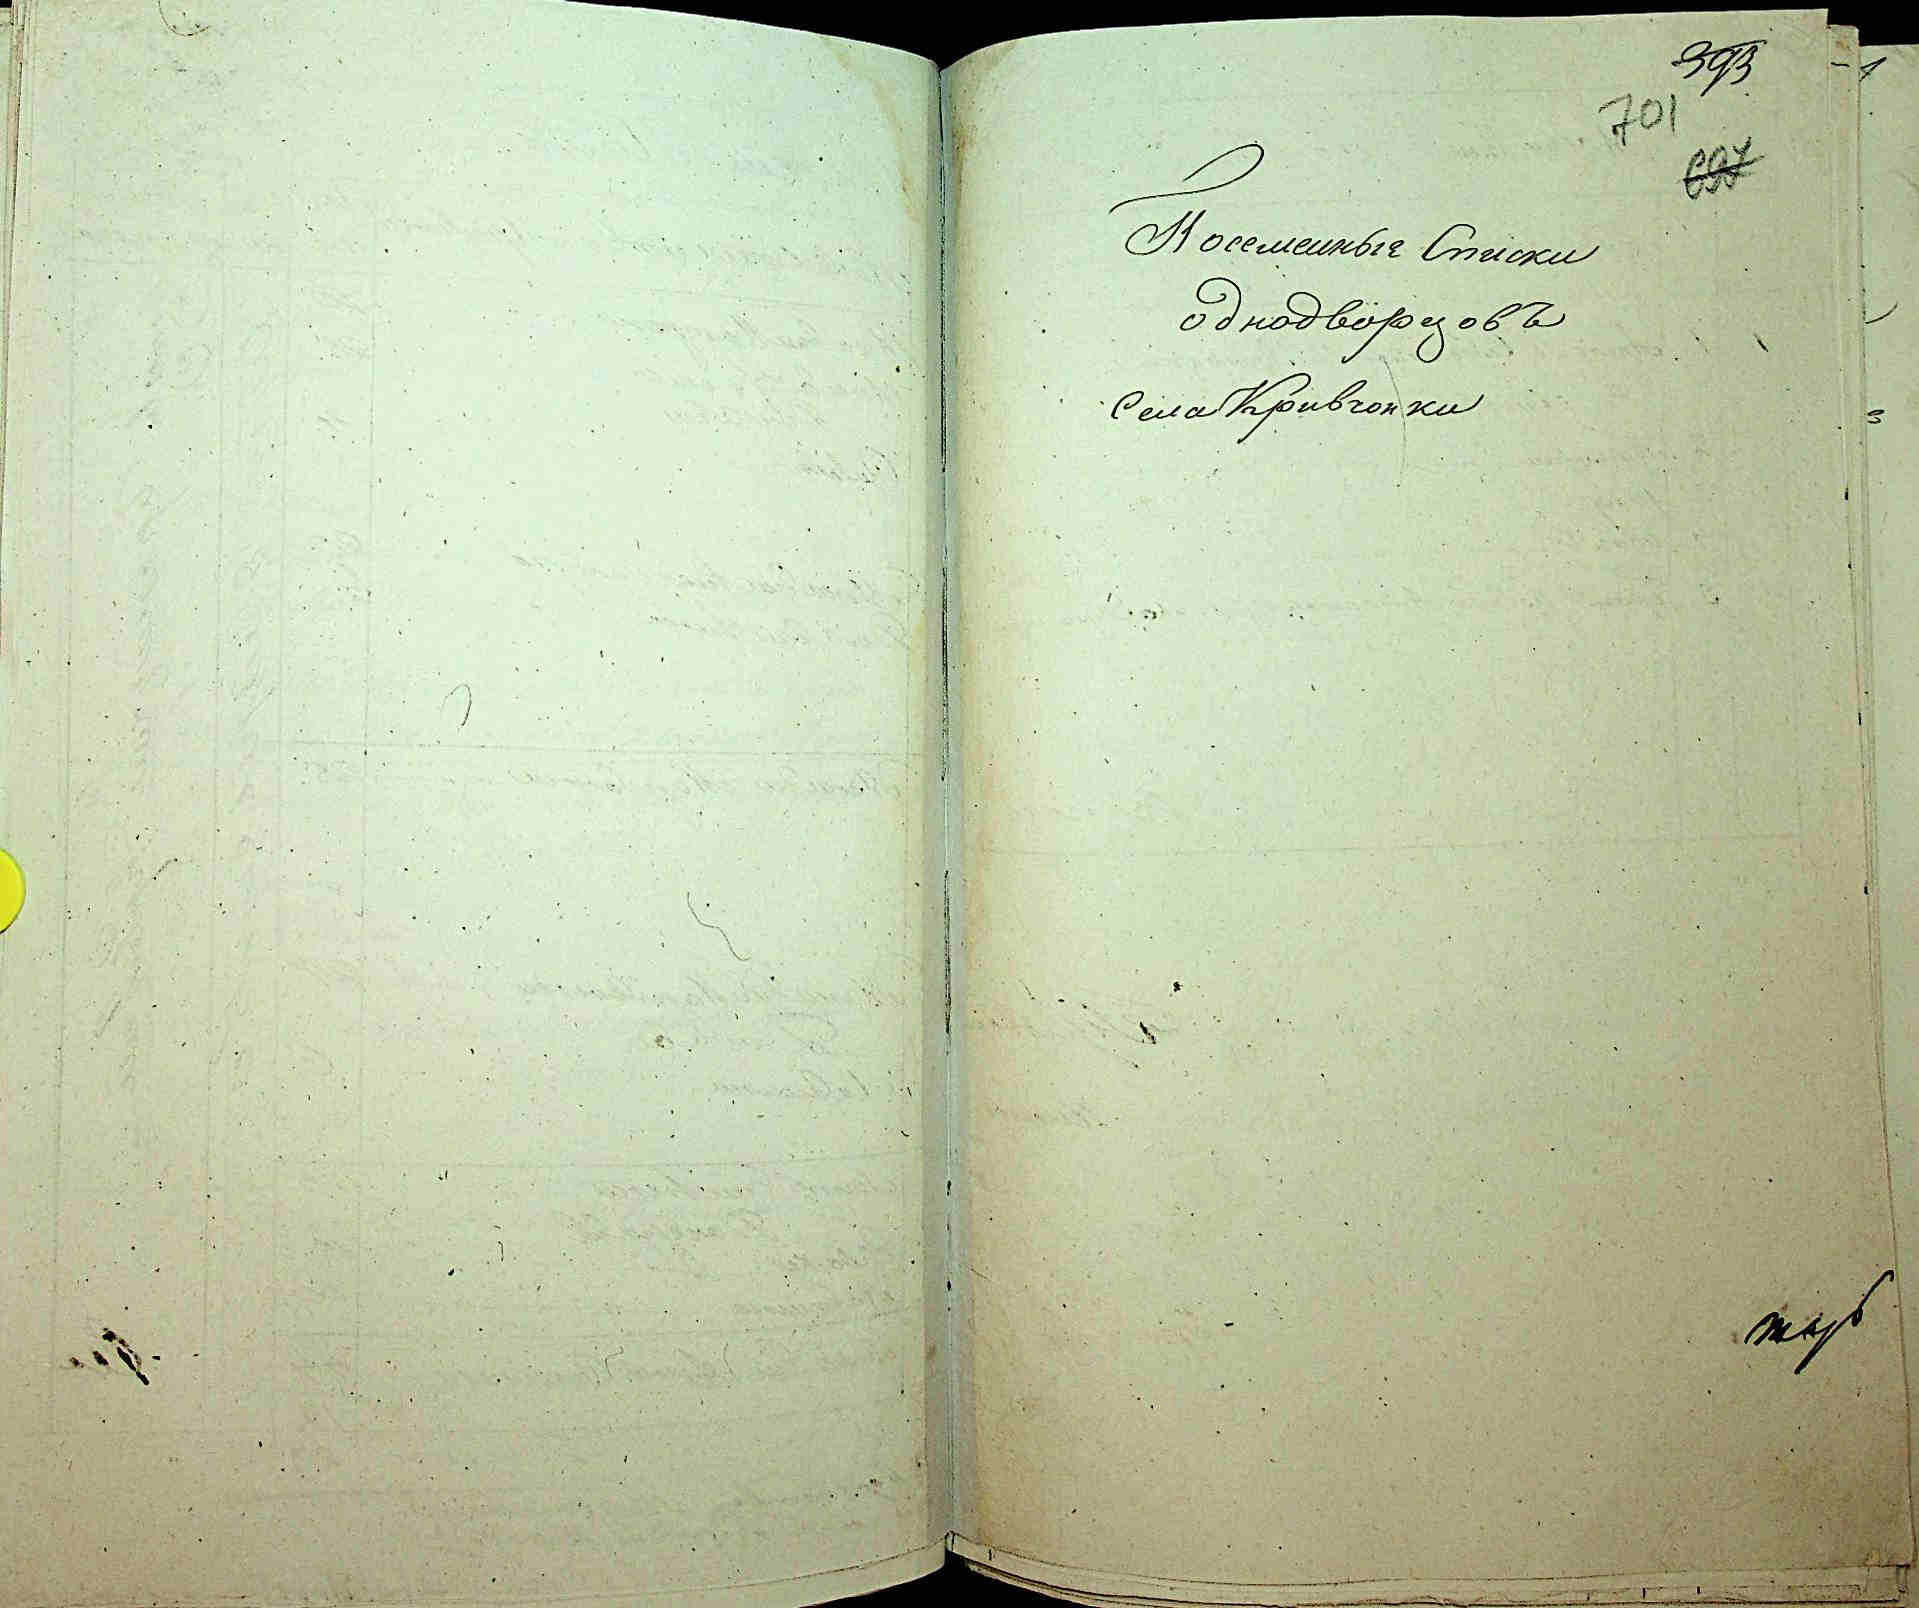 393
701
697
Посемейные Списки
однодворцовъ
села Кривчонки